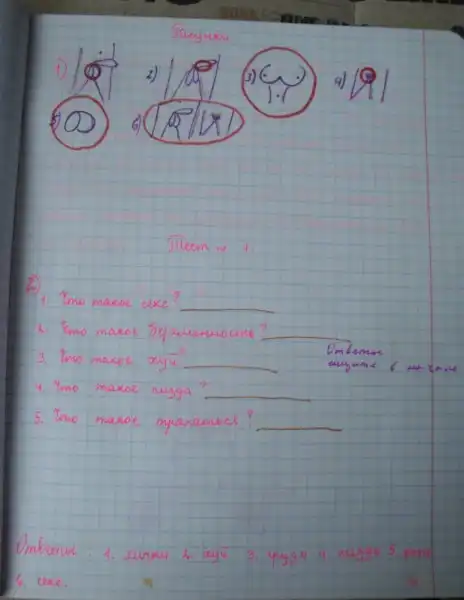 Рисунки
1) 2) 3) 4)
5) 6)
Тест № 1.
1. Что такое секс?
2. Что такое беременность?
3. Что такое хуй?
4. Что такое пизда?
5. Что такое трахаться?
Ответы
ищите в начале
Ответы: 1. 2. хуй 3. груди 4. пизда 5.
6. секс.